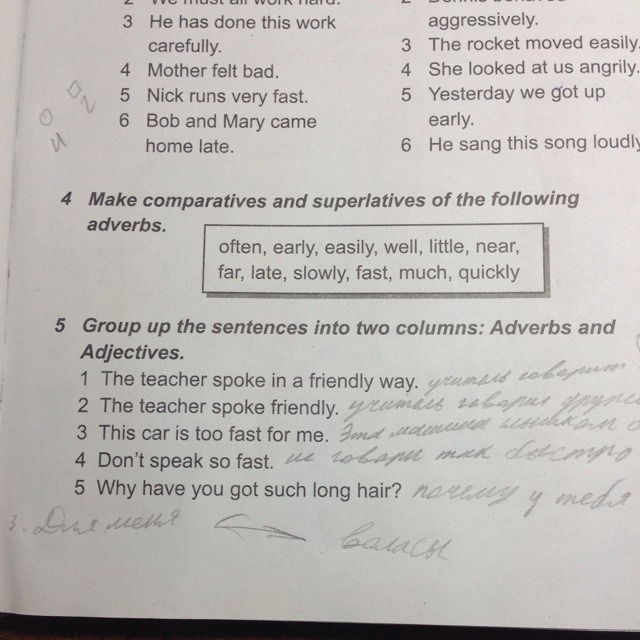 2 We must all work hard.
3 He has done this work
carefully.
4 Mother felt bad.
5 Nick runs very fast.
6 Bob and Mary came
home late.
2 Dennis behaved
aggressively.
3 The rocket moved easily.
4 She looked at us angrily.
5 Yesterday we got up
early.
6 He sang this song loudly
4 Make comparatives and superlatives of the following
adverbs.
often, early, easily, well, little, near,
far, late, slowly, fast, much, quickly
5 Group up the sentences into two columns: Adverbs and
Adjectives.
1 The teacher spoke in a friendly way. учитель говорит
2 The teacher spoke friendly. учитель говорил
3 This car is too fast for me. Эта машина
4 Don't speak so fast. не говори так быстро
5 Why have you got such long hair? почему у тебя
3. Для меня